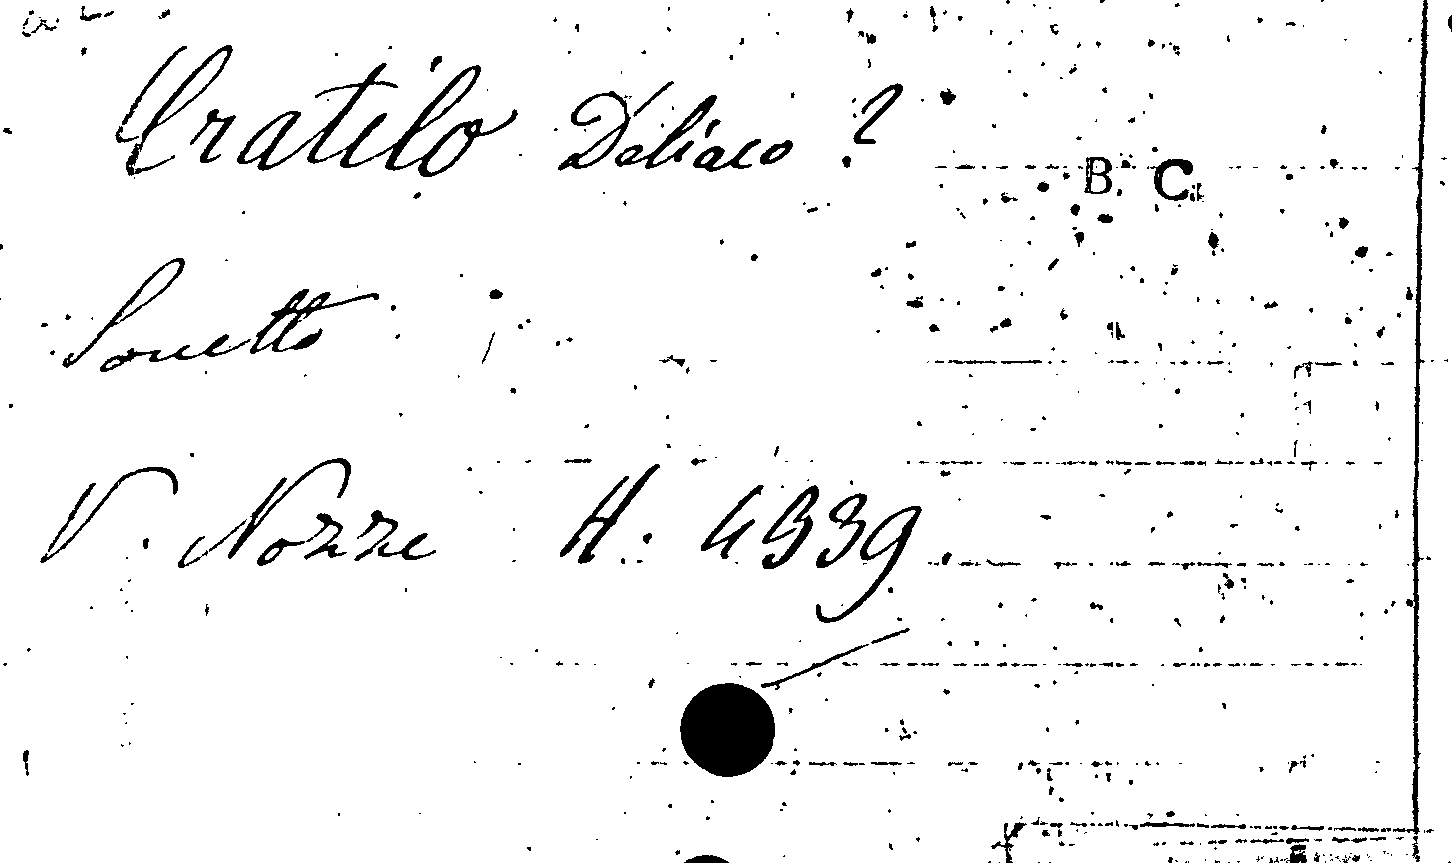 Cratilo Deliaco ?
B. C.
Sonetto
V. Nozze H. 4539.